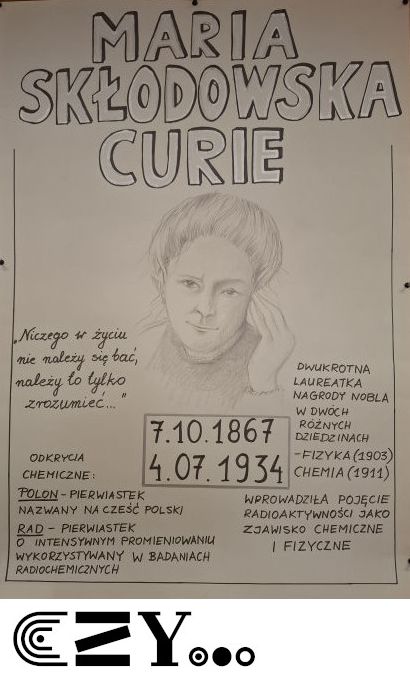 MARIA
SKŁODOWSKA
CURIE
„Niczego w życiu
nie należy się bać,
należy to tylko
zrozumieć..."
DWUKROTNA
LAUREATKA
NAGRODY NOBLA
W DWÓCH
RÓŻNYCH
DZIEDZINACH
-FIZYKA (1903)
CHEMIA (1911)
7.10.1867
4.07.1934
ODKRYCIA
CHEMICZNE:
POLON - PIERWIASTEK
NAZWANY NA CZEŚĆ POLSKI
RAD - PIERWIASTEK
O INTENSYWNYM PROMIENIOWANIU
WYKORZYSTYWANY W BADANIACH
RADIOCHEMICZNYCH
WPROWADZIŁA POJĘCIE
RADIOAKTYWNOŚCI JAKO
ZJAWISKO CHEMICZNE
I FIZYCZNE
CZY...